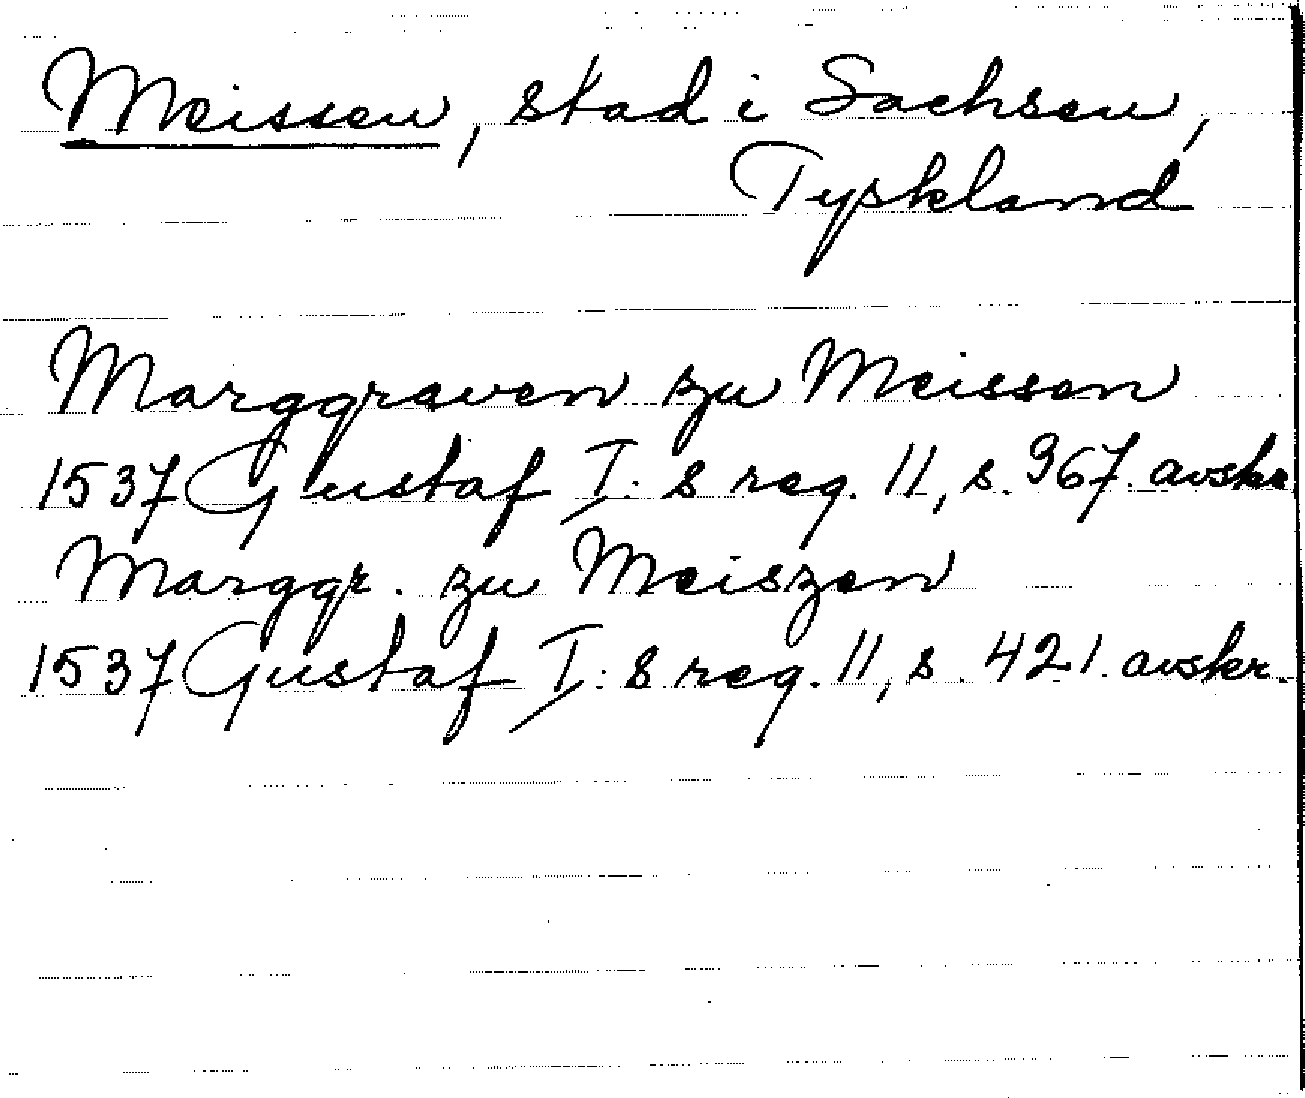 Meissen, stad i Sachsen,
Tyskland
Marggraven zu Meissen
1537 Gustaf I:s reg. 11, s. 367. avskr
Marggr. zu Meiszen
1537 Gustaf I:s reg. 11, s. 421. avskr.